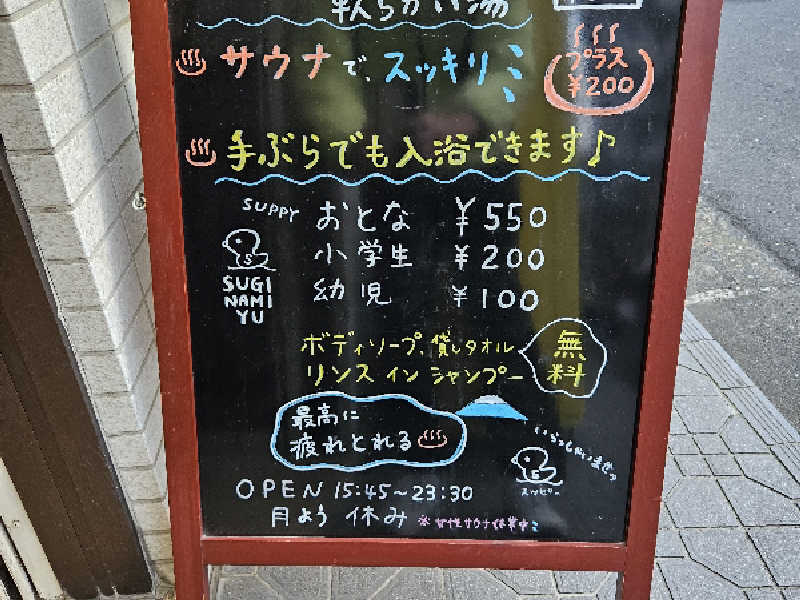 軟らかい湯
サウナで、スッキリ
プラス
¥200
手ぶらでも入浴できます♪
SUPPY
おとな ¥550
小学生 ¥200
幼児 ¥100
SUGI
NAMI
YU
ボディソープ、貸しタオル
リンスインシャンプー
無料
最高に
疲れとれる
いらっしゃいませっ
スッピー
OPEN 15:45～23:30
月よう 休み
※女性サウナ休業中